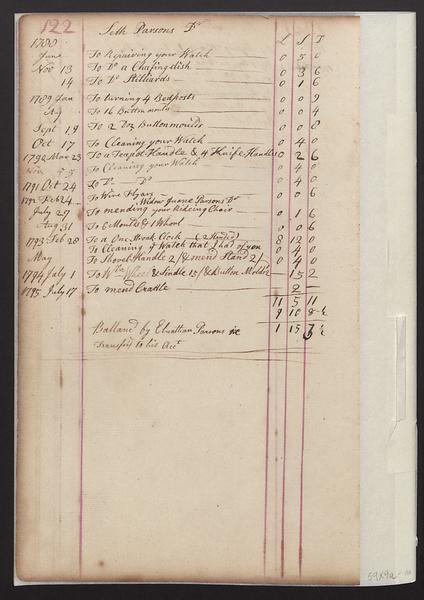 122 Seth Parsons Dr
1788 L S D
June To Repairing your Watch 0 5 0
Nov 13 To Do a Chafingdish 0 3 6
14 To Do Stilliards 0 1 6
1789 Jan To turning 4 Bedposts 0 0 9
To 16 Button moulds 0 0 4
Sept 19 To 2 Doz Buttonmoulds 0 0 8
Oct 17 To Cleaning your Watch 0 4 0
1790 Mar 23 To a Teapot Handle & 4 Knife Handles 0 2 6
To Cleaning your Watch 0 4 0
1791 Oct 24 To Do Do 0 4 0
Feb 24 To Wire 0 0 6
Widow Parsons Dr
July 27 To mending your Rideing Chair 0 1 6
Aug 31 To 6 Moulds & 1 Whorl 0 0 6
1793 Feb 28 To a One Week Clock 8 12 0
To Cleaning ye Watch that I had of you 0 4 0
May To Shovel Handle 2/ & mend Stand 2/ 0 4 0
1794 July 1 To Wheel & Spindle 15/ & Button Molds 15 2
1795 July 17 To mend Cradle 2
11 5 11
9 10 8
Ballance by Elnathan Parsons 1 15 3
Transfer to his Acct